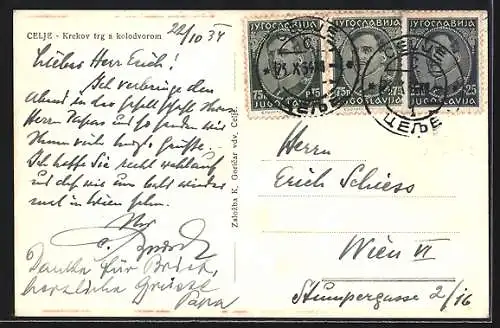 CELJE - Krekov trg s kolodvorom
22/10 34
Liebes Herr Erich!
Ich verbringe den
Abend in der Gesellschaft Ihres
Herrn Papas und so senden wir
Ihnen viele Grüße.
Ich hoffe Sie recht wohlauf
und daß wir uns bald wieder
mal in Wien sehn.
Ihr
Danke für Brief,
herzliche Grüsse
Papa
Založba K. Goričar vdv. Celje.
ЈУГОСЛАВИЈА ЈУГОСЛАВИЈА ЈУГОСЛАВИЈА
75P 75P 25
JUGOSLAVIJA JUGOSLAVIJA JUGOSLAVIJA
CELJE
ЦЕЉЕ
CELJE
ЦЕЉЕ
Herrn
Erich Schiess
Wien VI
Stumpergasse 2/16